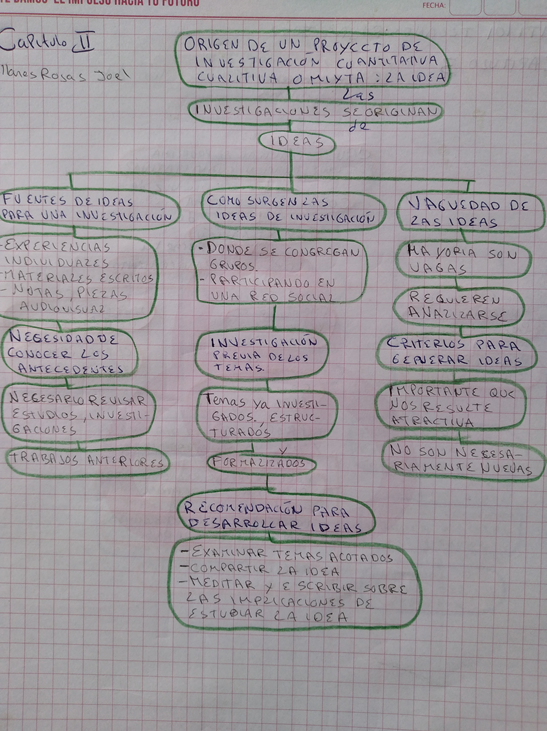 IMPULSO HACIA TU FUTURO
FECHA:
Capitulo II
Rosas Joel
ORIGEN DE UN PROYECTO DE
INVESTIGACIÓN CUANTITATIVA
CUALITIVA O MIXTA: LA IDEA
Las
INVESTIGACIONES SE ORIGINAN
de
IDEAS
FUENTES DE IDEAS
PARA UNA INVESTIGACIÓN
-EXPERIENCIAS
INDIVIDUALES
-MATERIALES ESCRITOS
-NOTAS, PIEZAS
AUDIOVISUAL
NEGESIDAD DE
CONOCER LOS
ANTECEDENTES
NEGESARIO REVISAR
ESTUDIOS, INVESTI-
GACIONES
TRABAJOS ANTERIORES
COMO SURGEN LAS
IDEAS DE INVESTIGACIÓN
-DONDE SE CONGREGAN
GRUPOS.
-PARTICIPANDO EN
UNA RED SOCIAL
INVESTIGACIÓN
PREVIA DE LOS
TEMAS.
Temas ya INVESTI-
GADOS, ESTRUC-
TURADOS
Y
FORMALIZADOS
RECOMENDACIÓN PARA
DESARROLLAR IDEAS
-EXAMINAR TEMAS ACOTADOS
-COMPARTIR LA IDEA
-MEDITAR Y ESCRIBIR SOBRE
LAS IMPLICACIONES DE
ESTUDIAR LA IDEA
VAGUEDAD DE
LAS IDEAS
MAYORIA SON
VAGAS
REQUIEREN
ANALIZARSE
CRITERIOS PARA
GENERAR IDEAS
IMPORTANTE QUE
NOS RESULTE
ATRACTIVA
NO SON NECESA-
RIAMENTE NUEVAS